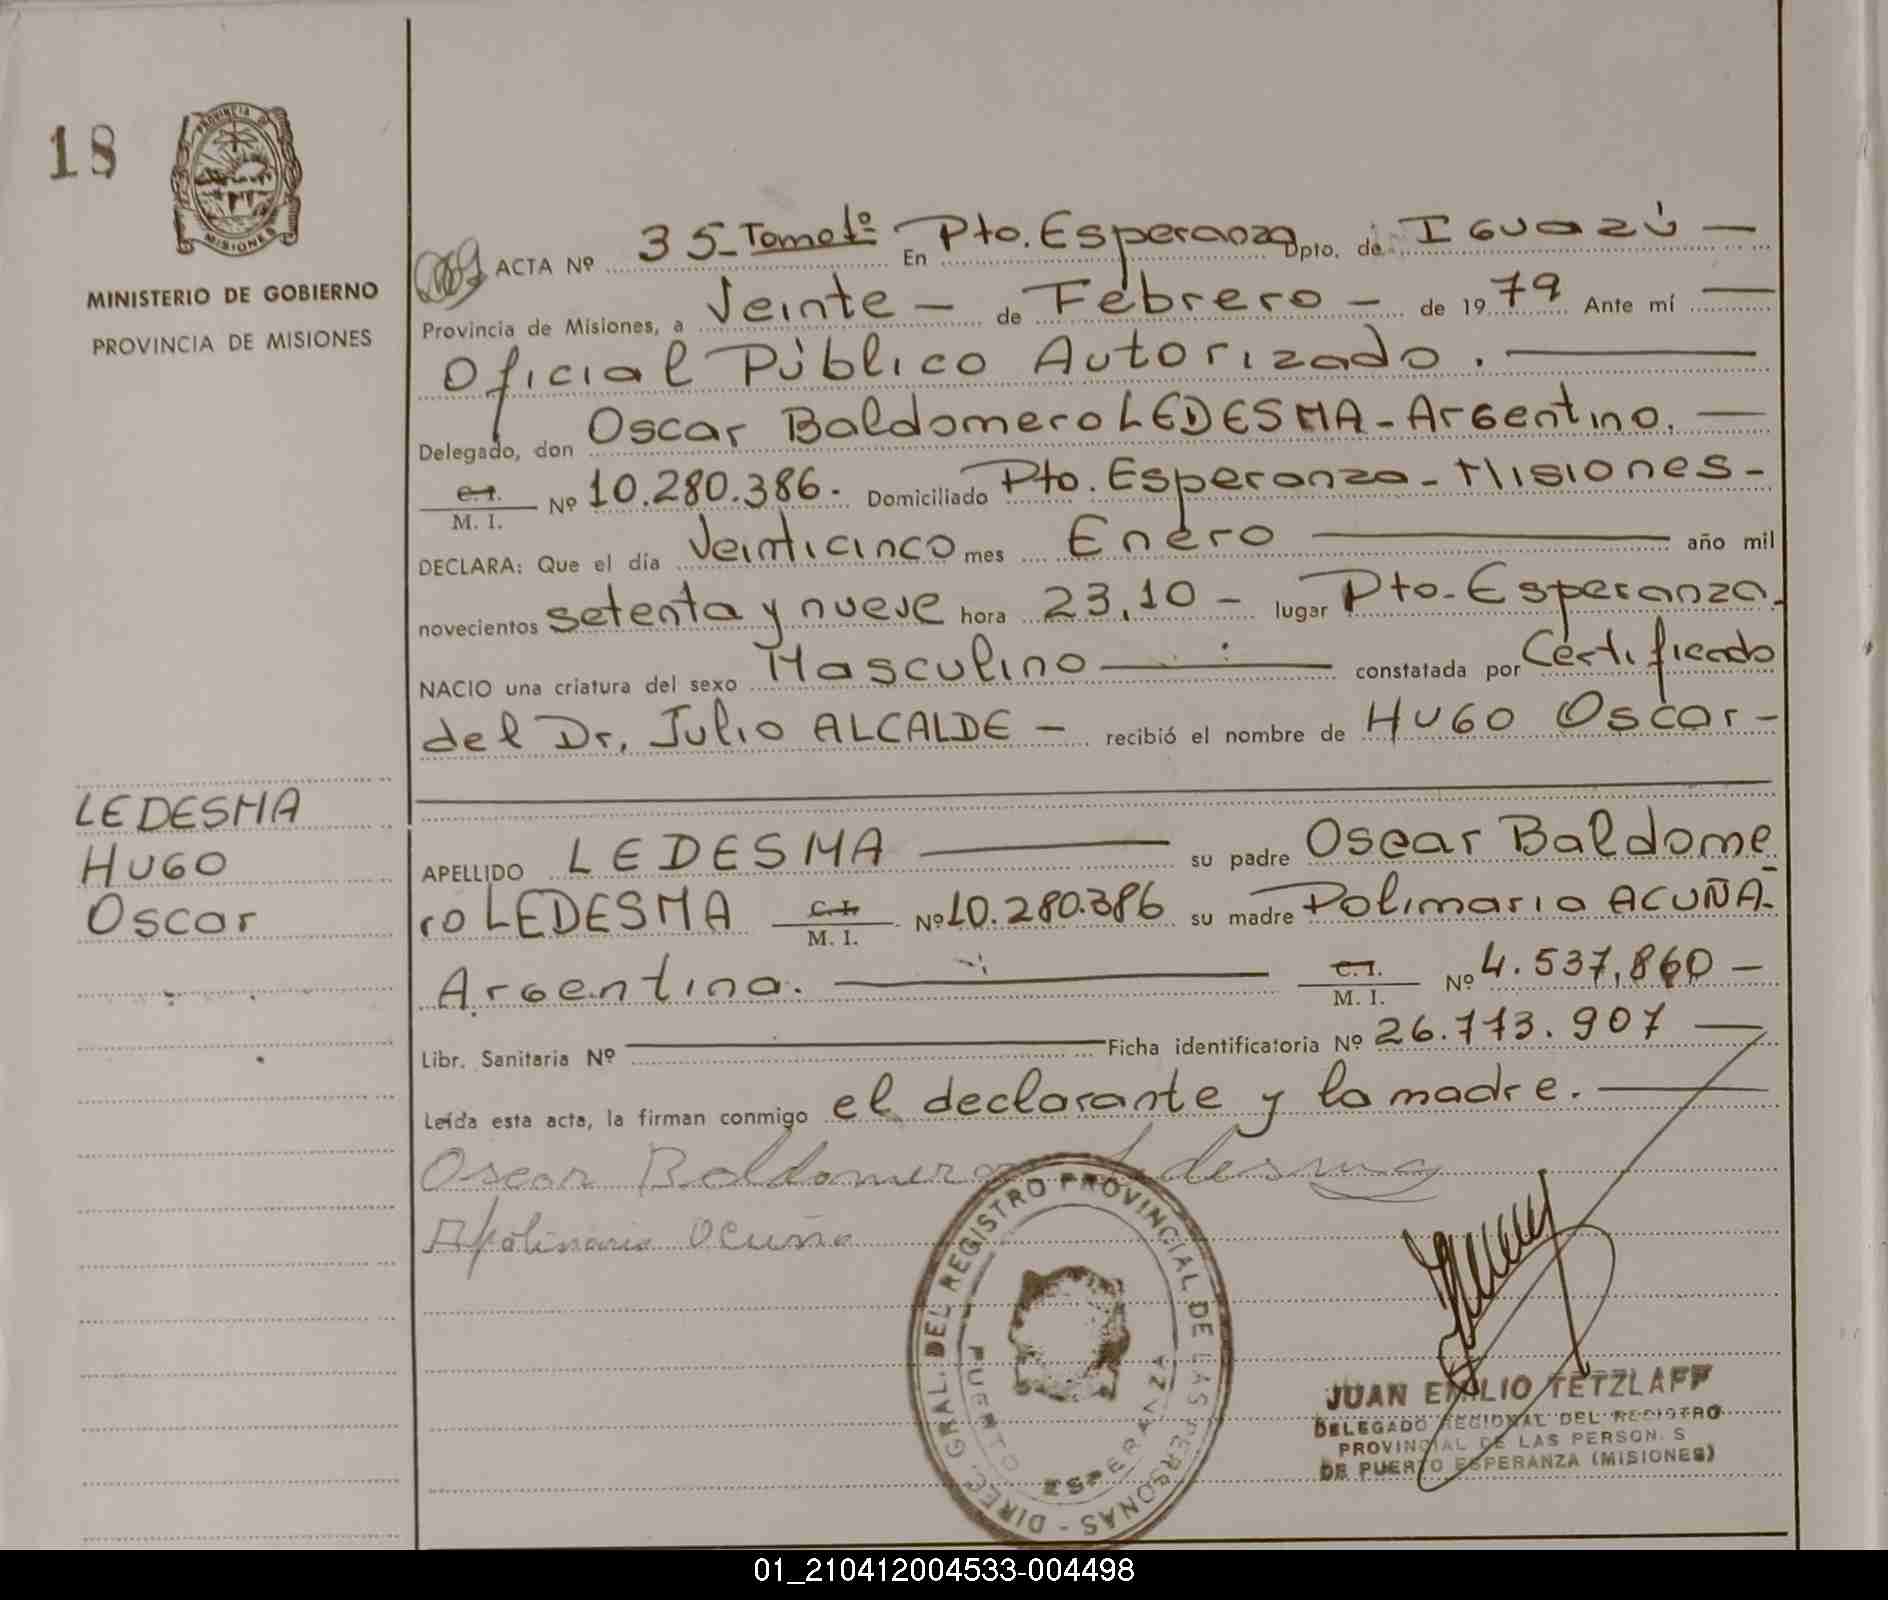 18
PROVINCIA DE
MISIONES
MINISTERIO DE GOBIERNO
PROVINCIA DE MISIONES
LEDESMA
HUGO
Oscar
ACTA Nº 35-Tomo 1º En Pto. Esperanza Dpto. de Iguazú —
Provincia de Misiones, a Veinte — de Febrero — de 1979 Ante mí —
Oficial Público Autorizado. —
Delegado, don Oscar Baldomero LEDESMA - Argentino. —
C.I. M. I. Nº 10.280.386. Domiciliado Pto. Esperanza - Misiones -
DECLARA: Que el día Veinticinco mes Enero — año mil
novecientos setenta y nueve hora 23,10 - lugar Pto. Esperanza.
NACIO una criatura del sexo Masculino — constatada por Certificado
del Dr. Julio ALCALDE — recibió el nombre de HUGO Oscar -
APELLIDO LEDESMA — su padre Oscar Baldome
ro LEDESMA C.I. M. I. Nº 10.280.386 su madre Polimaria ACUÑA-
Argentina. — C.I. M. I. Nº 4.537,860 —
Libr. Sanitaria Nº — Ficha identificatoria Nº 26.773.907 —
Leída esta acta, la firman conmigo el declarante y la madre. —
Oscar Baldomero Ledesma
Apolinaria Acuña
DIREC. GRAL. DEL REGISTRO PROVINCIAL DE LAS PERSONAS -
PUERTO ESPERANZA
JUAN EMILIO TETZLAFF
DELEGADO REGIONAL DEL REGISTRO
PROVINCIAL DE LAS PERSON S
DE PUERTO ESPERANZA (MISIONES)
01_210412004533-004498